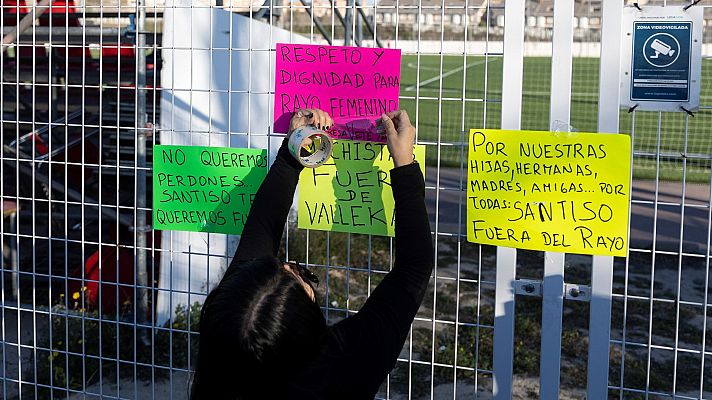 RESPETO Y
DIGNIDAD PARA
RAYO FEMENINO
NO QUEREMOS
PERDONES...
SANTISO TE
QUEREMOS
FUERA
DE
VALLEKA
POR NUESTRAS
HIJAS, HERMANAS,
MADRES, AMIGAS... POR
TODAS: SANTISO
FUERA DEL RAYO
ZONA VIDEOVIGILADA